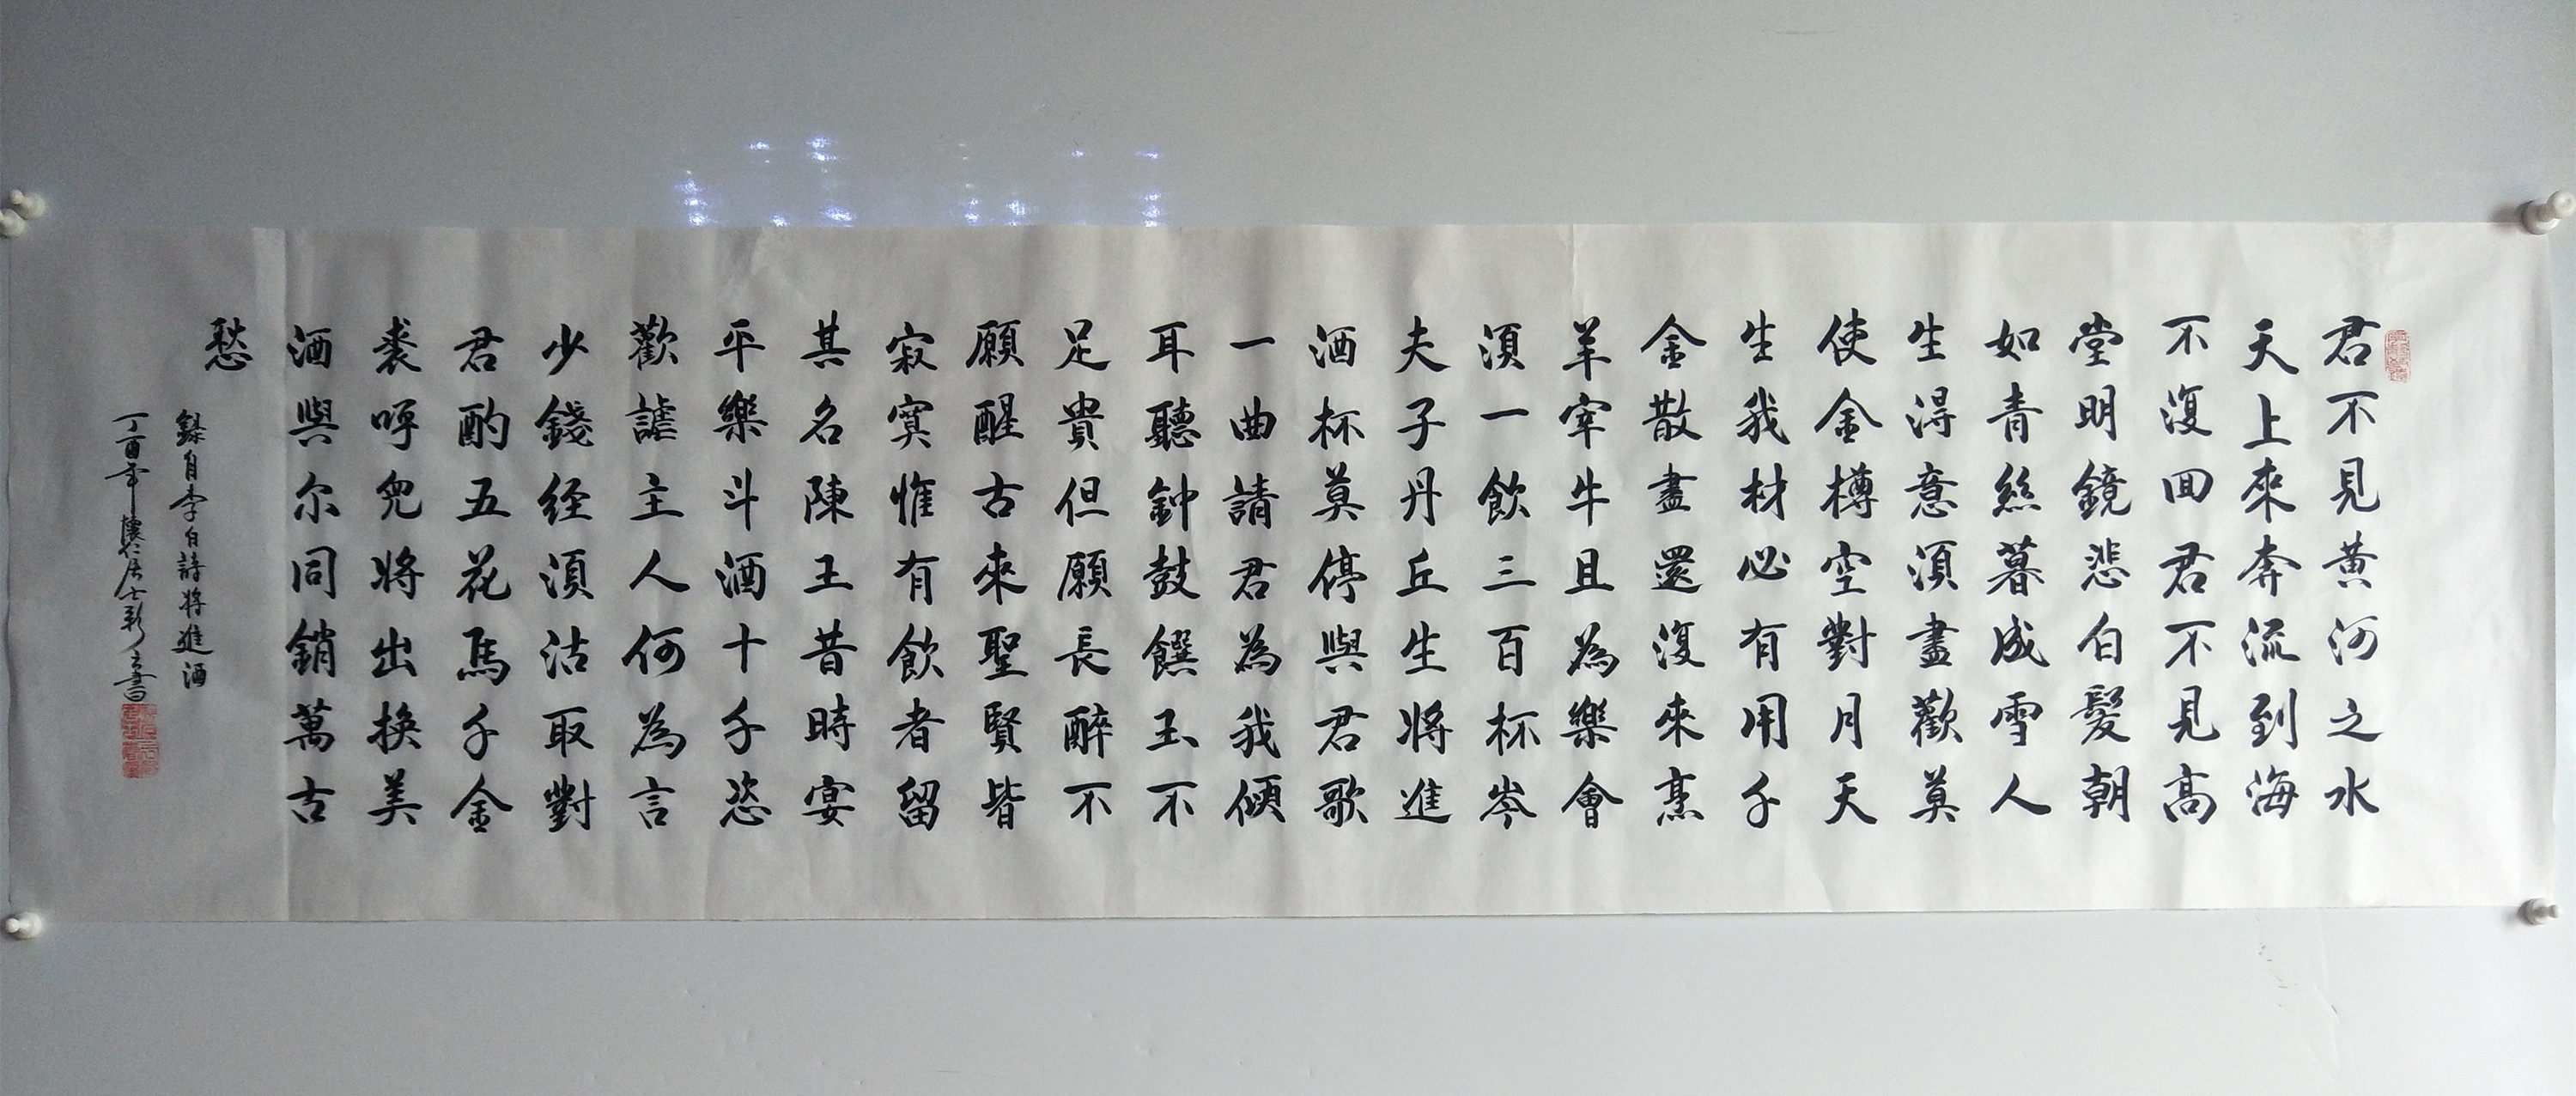 君不見黄河之水
天上來奔流到海
不復回君不見高
堂明鏡悲白髮朝
如青絲暮成雪人
生得意須盡歡莫
使金樽空對月天
生我材必有用千
金散盡還復來烹
羊宰牛且為樂會
須一飲三百杯岑
夫子丹丘生将進
酒杯莫停與君歌
一曲請君為我傾
耳聽鈡鼓饌玉不
足貴但願長醉不
願醒古來聖賢皆
寂寞惟有飲者留
其名陳王昔時宴
平樂斗酒十千恣
歡謔主人何為言
少錢経須沽取對
君酌五花馬千金
裘呼兒将出換美
酒與尔同銷萬古
愁
錄自李白詩将進酒
丁酉年懷仁居士彩云書